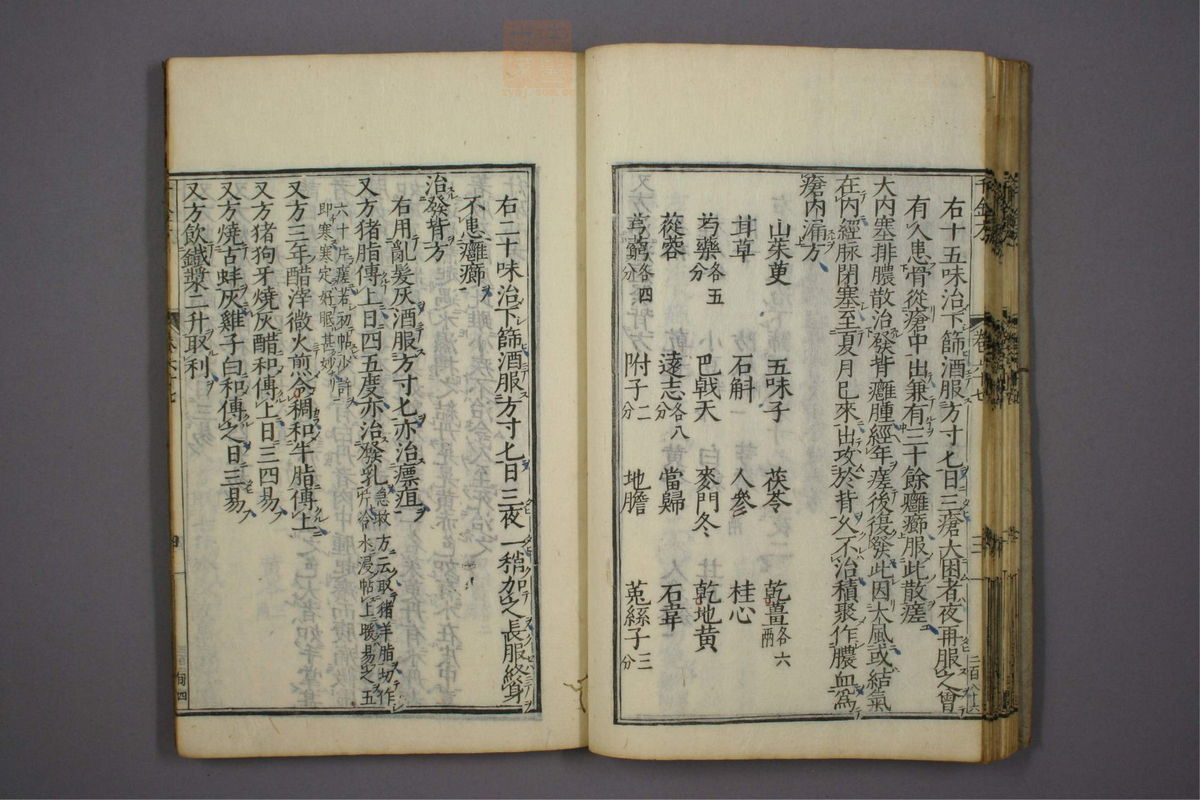 右十五味治下篩酒服方寸匕日三瘡大困者夜再服之曾
有人患骨從瘡中出兼有三十餘癰癤服此散瘥
大内塞排膿散治發背癰腫經年瘥後復發此因大風或結氣
在内經脉閉塞至夏月已來出攻於背久不治積聚作膿血爲
瘡内漏方
山茱萸 五味子 茯苓 乾薑各六兩
茸草 石斛 人參 桂心
芍藥各五分 巴戟天 麥門冬 乾地黄
蓯蓉 遠志各八分 當歸 石韋
芎藭各四分 附子二分 地膽 菟絲子三分
右二十味治下篩酒服方寸匕日三夜一稍加之長服終身
不患癰癤
治發背方
右用亂髮灰酒服方寸匕亦治瘭疽
又方猪脂傅上日四五度亦治發乳急救方云取猪羊脂切作片冷水浸帖上暖易之五
六十片瘥若初帖少許即寒寒定好眠甚妙
又方三年醋滓微火煎令稠和牛脂傅上
又方猪狗牙燒灰醋和傅上日三四易
又方燒古蚌灰雞子白和傅之日三易
又方飲鐵漿二升取利
千金方